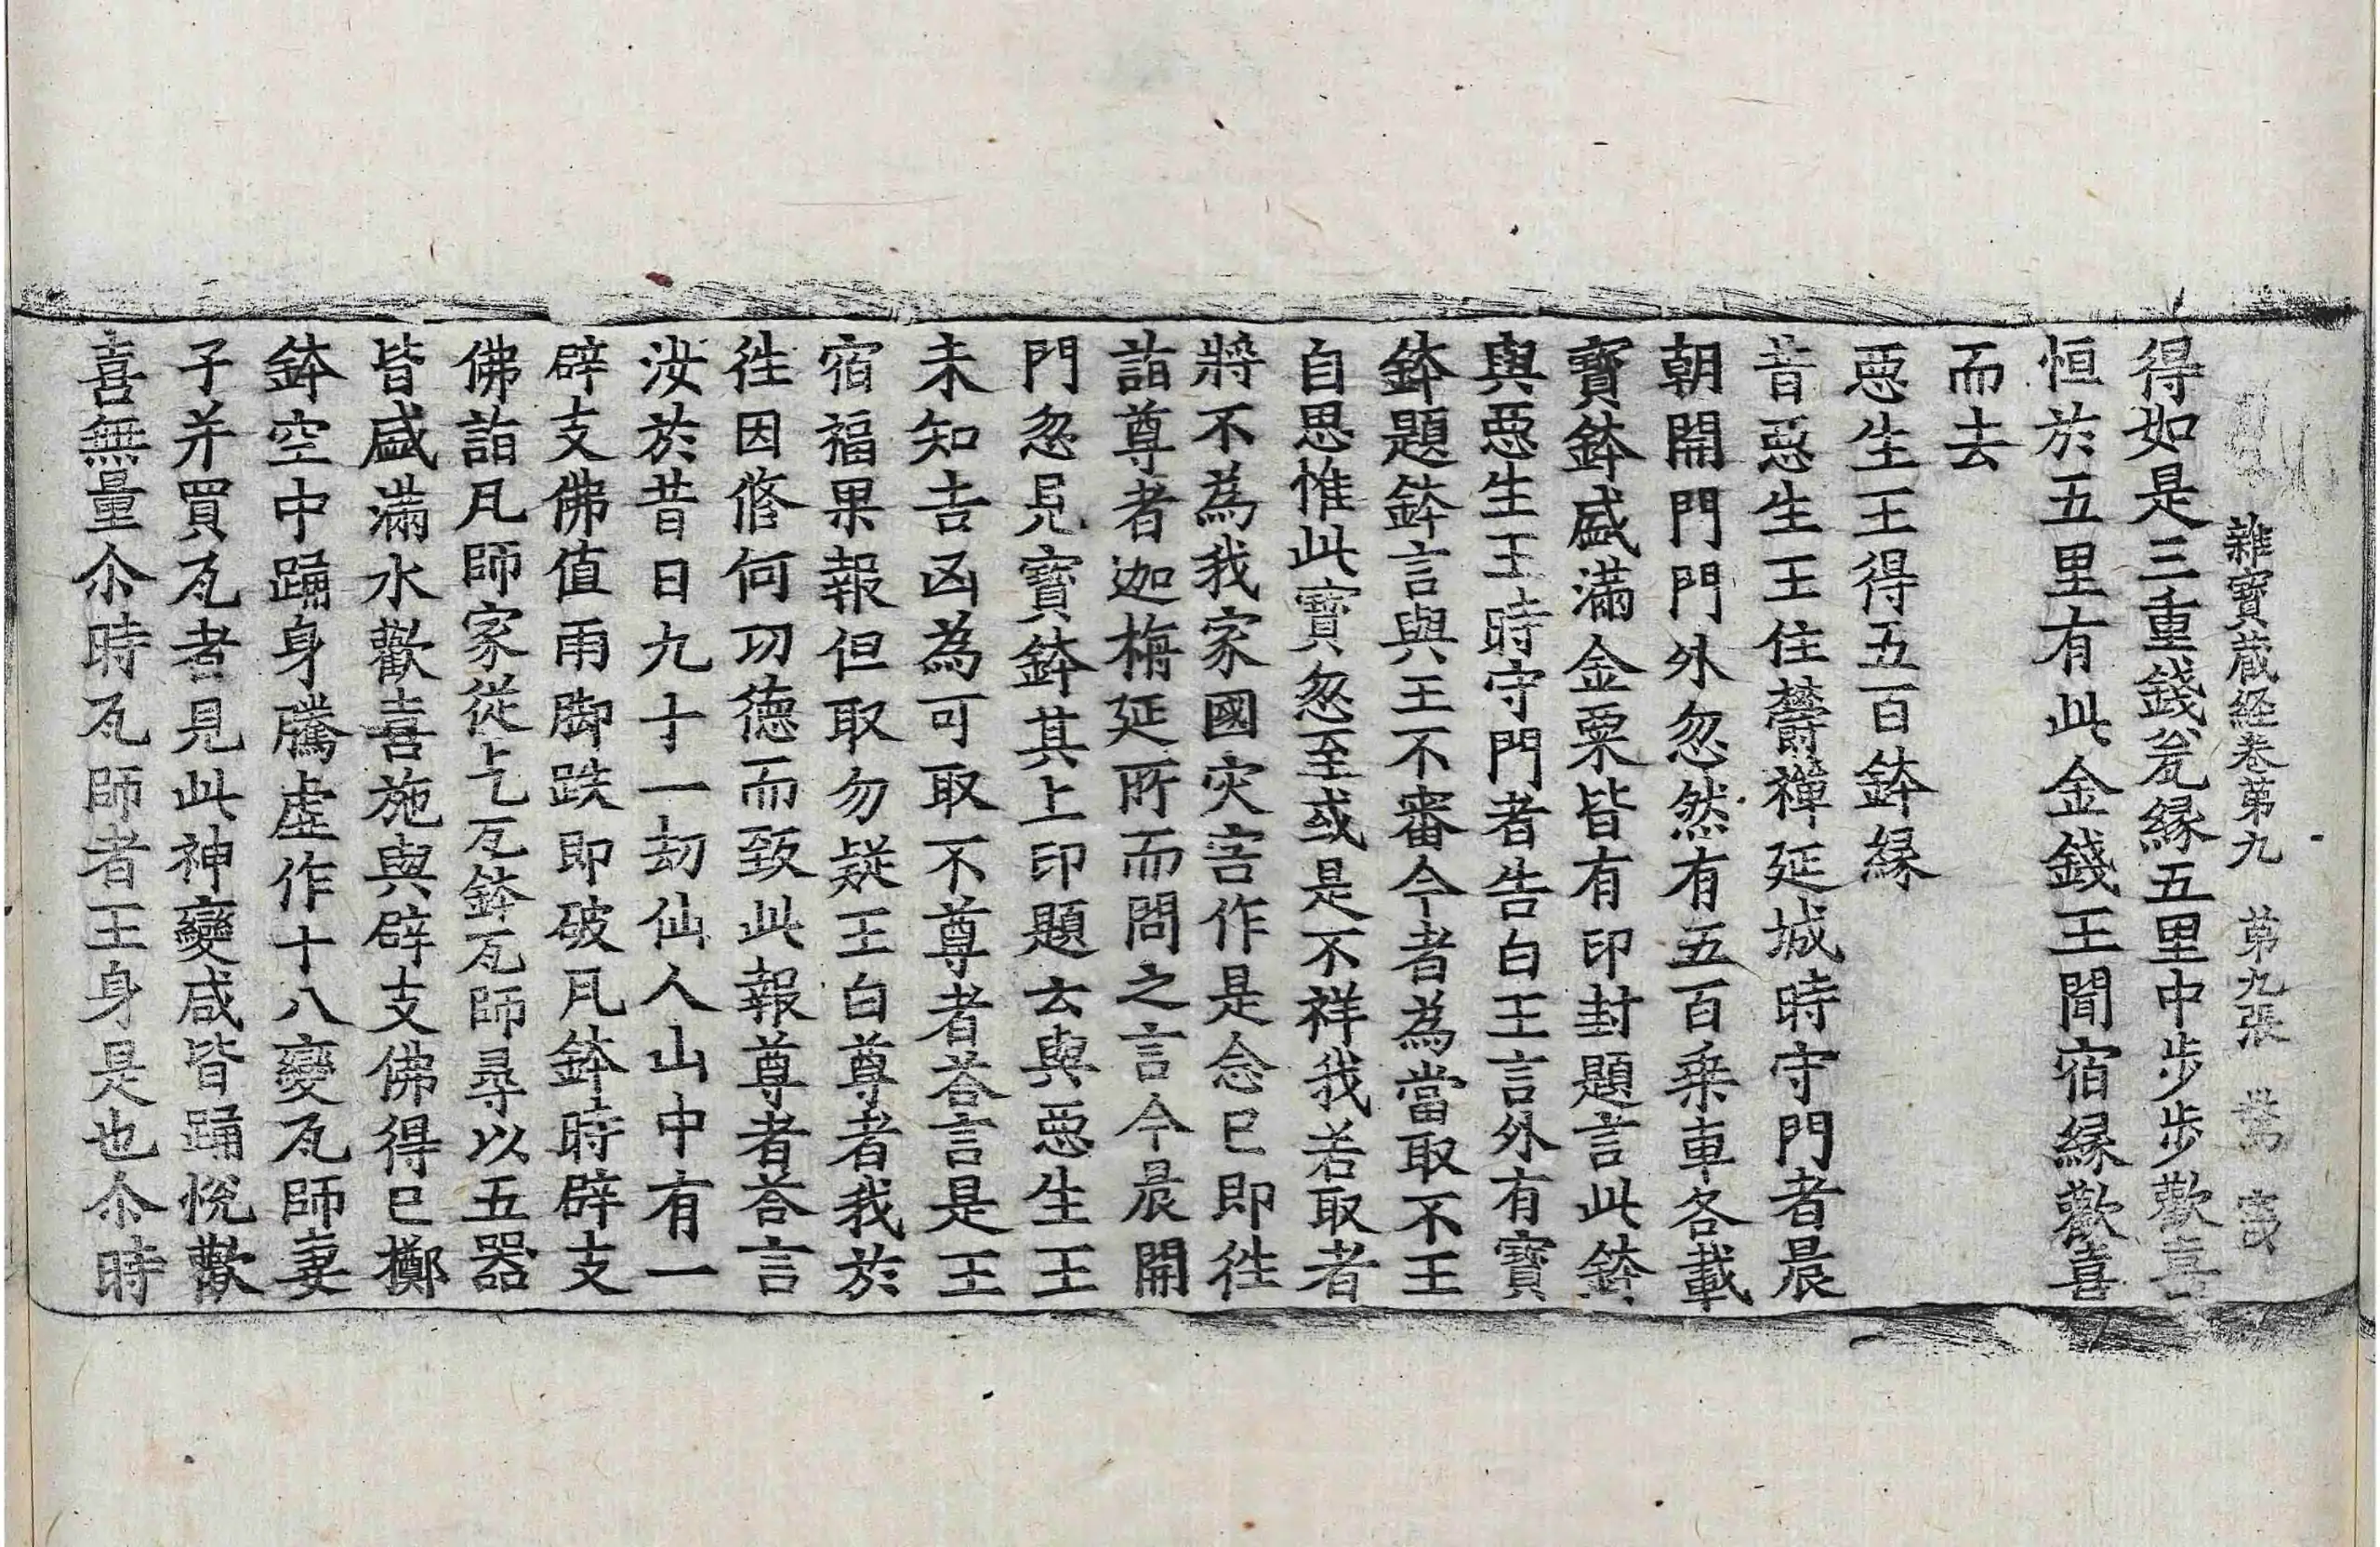 雜寶蔵経卷苐九 苐九張
得如是三重錢瓮緣五里中步步歡喜
恒於五里有此金錢王聞宿緣歡喜
而去
惡生王得五百鉢緣
昔惡生王住欝禪延城時守門者晨
朝開門門外忽然有五百乗車各載
寶鉢盛滿金粟皆有印封題言此鉢
與惡生王時守門者告白王言外有寶
鉢題鉢言與王不審今者為當取不王
自思惟此寶忽至或是不祥我若取者
將不為我家國灾害作是念已即徃
詣尊者迦栴延所而問之言今晨開
門忽見寶鉢其上印題云與惡生王
未知吉凶為可取不尊者荅言是王
宿福果報但取勿疑王白尊者我於
徃因俢何功德而致此報尊者荅言
汝於昔日九十一劫仙人山中有一
辟支佛值雨脚跌即破瓦鉢時辟支
佛詣瓦師家從乞瓦鉢瓦師尋以五器
皆盛滿水歡喜施與辟支佛得已擲
鉢空中踊身騰虛作十八變瓦師妻
子并買瓦者見此神變咸皆踊悅歡
喜無量尒時瓦師者王身是也尒時